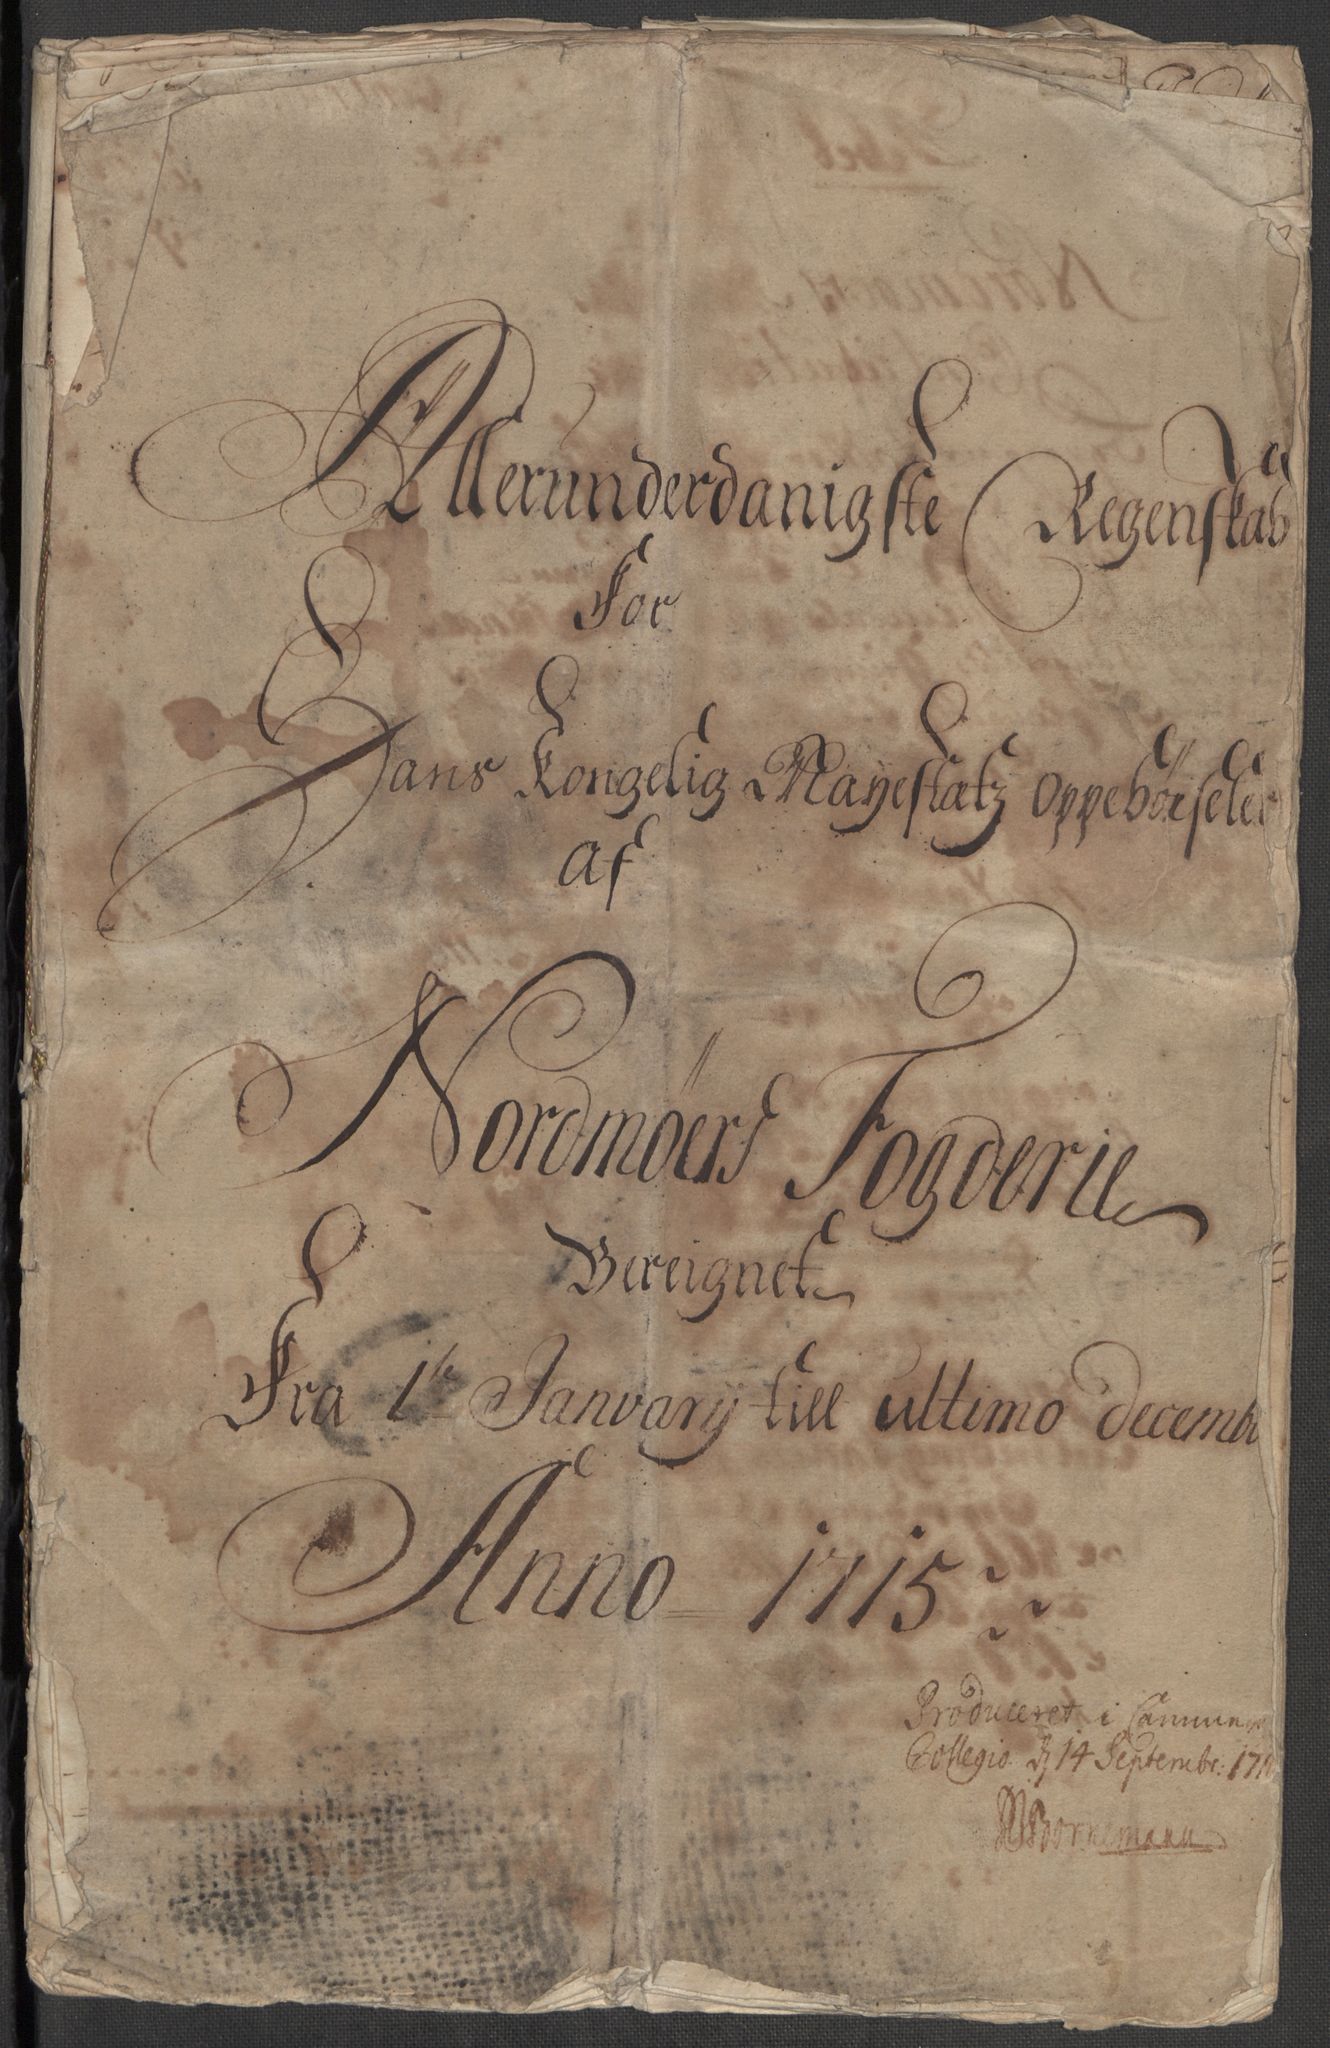 Allerunderdanigste Regenskab
For
Hans Kongelig Mayestætz Oppebörseler
af
Nordmøers Fogderie
Bereignet
Fra 1te Janvarij till ultimo decembr
Anno 1715
Produceret i Cammer
Collegio d 14 Septembr: 171
Bornemann